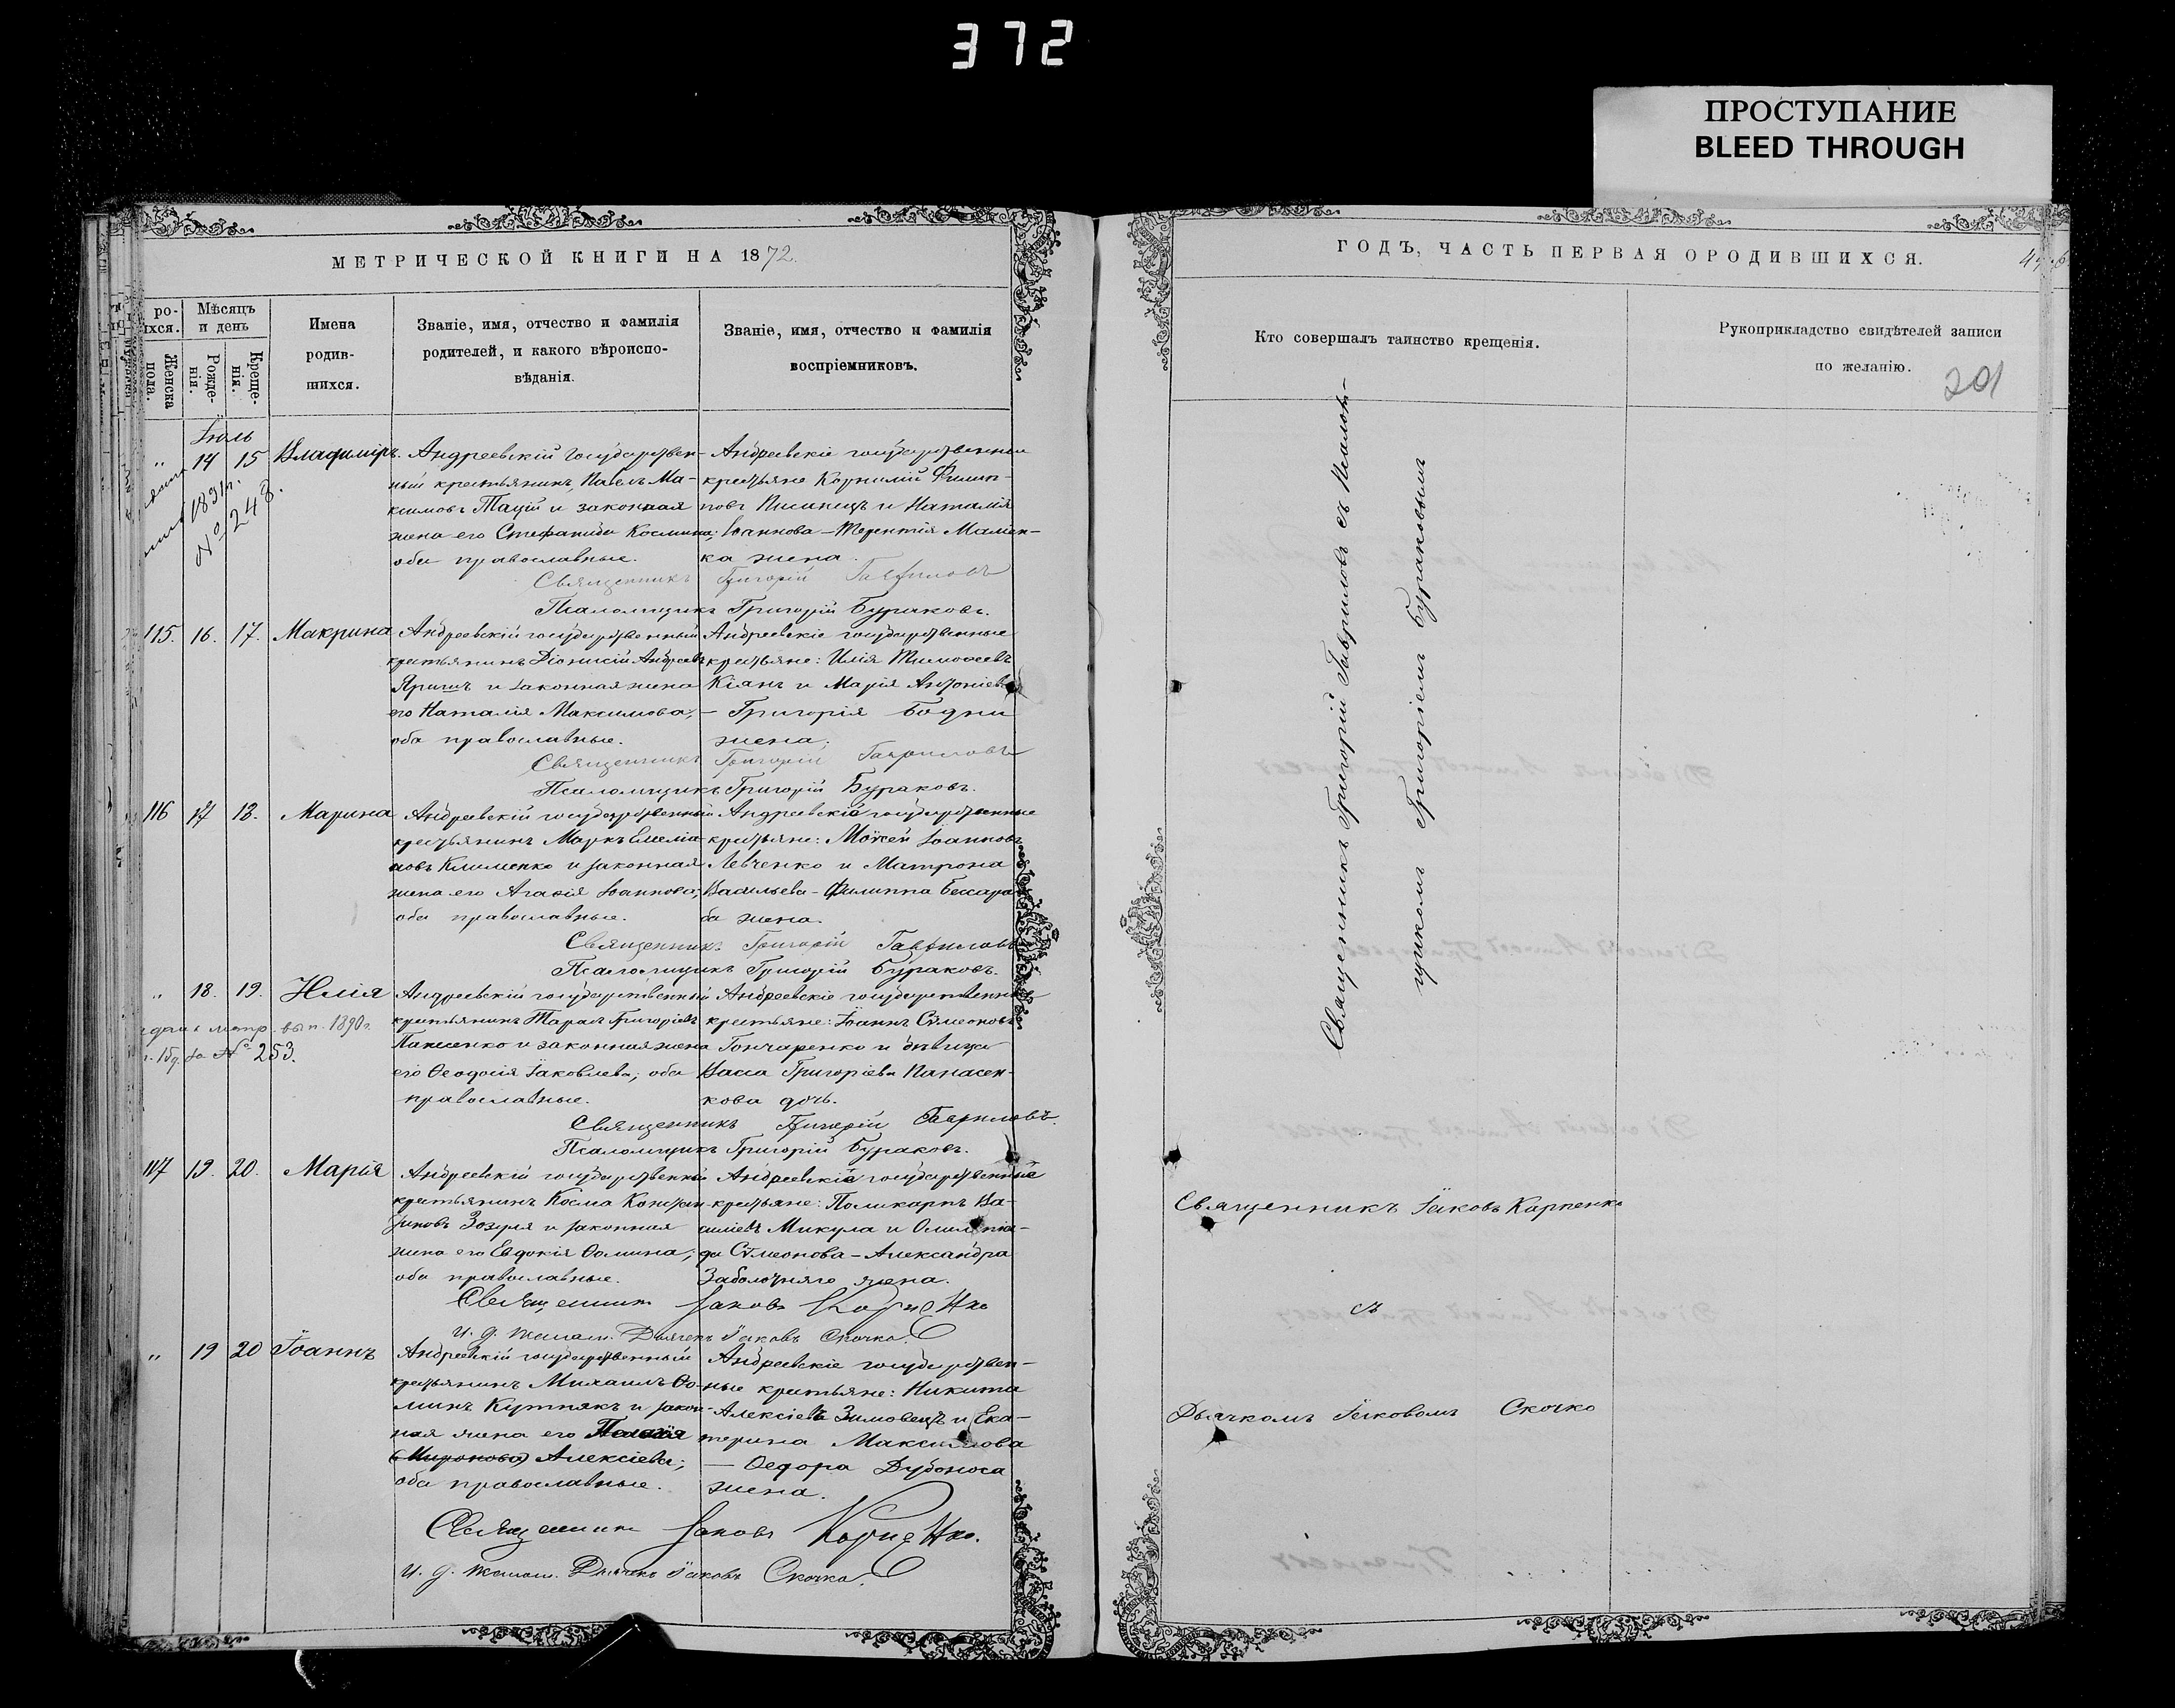 372
ПРОСТУПАНИЕ
BLEED THROUGH
МЕТРИЧЕСКОЙ КНИГИ НА 1872.
ро-
іхся.
Мѣсяцъ
и день
Женска
пола.
Рожде-
нія.
Креще-
нія.
Имена
родив-
шихся.
Званіе, имя, отчество и фамилія
родителей, и какого вѣроиспо-
вѣданія.
Званіе, имя, отчество и фамилія
воспріемниковъ.
Іюль
„ 14 15 Владиміръ.
1891 г.
№ 248.
Андреевскій государствен-
ный крестьянинъ, Павелъ Ма-
ксимовъ Тацій и законная
жена его Стефанида Космина;
оба православные.
Андреевскіе государственные
крестьяне Корнилій Филип-
повъ Пилипецъ и Наталія
Іоаннова – Терентія Мамен-
ка жена.
Священникъ Григорій Гавриловъ
Псаломщикъ Григорій Бураковъ.
115. 16. 17. Макрина
Андреевскій государственный
крестьянинъ Діонисій Андреевъ
Яришъ и законная жена
его Наталія Максимова;
оба православные.
Андреевскіе государственные
крестьяне: Илія Тимоѳеевъ
Кіянъ и Марія Антоніева
– Григорія Бодни
жена.
Священникъ Григорій Гавриловъ
Псаломщикъ Григорій Бураковъ.
116 17 18. Марина
Андреевскій государственный
крестьянинъ Маркъ Емелiа-
новъ Клименко и законная
жена его Агаѳія Іоаннова;
оба православные.
Андреевскіе государственные
крестьяне: Моѵсей Іоанновъ
Левченко и Матрона
Васильева – Филиппа Бессара-
ба жена.
Священникъ Григорій Гавриловъ
Псаломщикъ Григорій Бураковъ.
„ 18. 19. Илія
метр. вып. 1890 г.
за № 253.
Андреевскій государственный
крестьянинъ Тарасъ Григоріевъ
Панасенко и законная жена
его Ѳеодосія Іаковлева; оба
православные.
Андреевскіе государственные
крестьяне: Іоаннъ Сѵмеоновъ
Гончаренко и дѣвица
Васса Григоріева Панасен-
кова дочь.
Священникъ Григорій Гавриловъ.
Псаломщикъ Григорій Бураковъ.
117 19. 20. Марія
Андреевскій государственный
крестьянинъ Косма Констан-
тиновъ Зозуля и законная
жена его Евдокія Ѳомина;
оба православные.
Андреевскіе государственные
крестьяне: Поликарпъ Ва-
силіевъ Микула и Олимпіа-
да Сѵмеонова – Александра
Заболотняго жена.
Священникъ Іаковъ Карпенко
И. д. псалом. Дьячекъ Іаковъ Скочко.
„ 19 20 Іоаннъ
Андреевскій государственный
крестьянинъ Михаилъ Ѳо-
минъ Кутнякъ и закон-
ная жена его Пелагія
(Миронова) Алексіева;
оба православные.
Андреевскіе государствен-
ные крестьяне: Никита
Алексіевъ Зимовецъ и Ека-
терина Максимова
– Ѳедора Дубоноса
жена.
Священникъ Іаковъ Карпенко.
И. д. псалом. Дьячекъ Іаковъ Скочко.
ГОДЪ, ЧАСТЬ ПЕРВАЯ ОРОДИВШИХСЯ.
Кто совершалъ таинство крещенія.
Рукоприкладство свидѣтелей записи
по желанію.
201
Священникъ Григорій Гавриловъ съ Псалом-
щикомъ Григоріемъ Бураковымъ
Священникъ Іаковъ Карпенко
съ
Дьячкомъ Іаковомъ Скочко